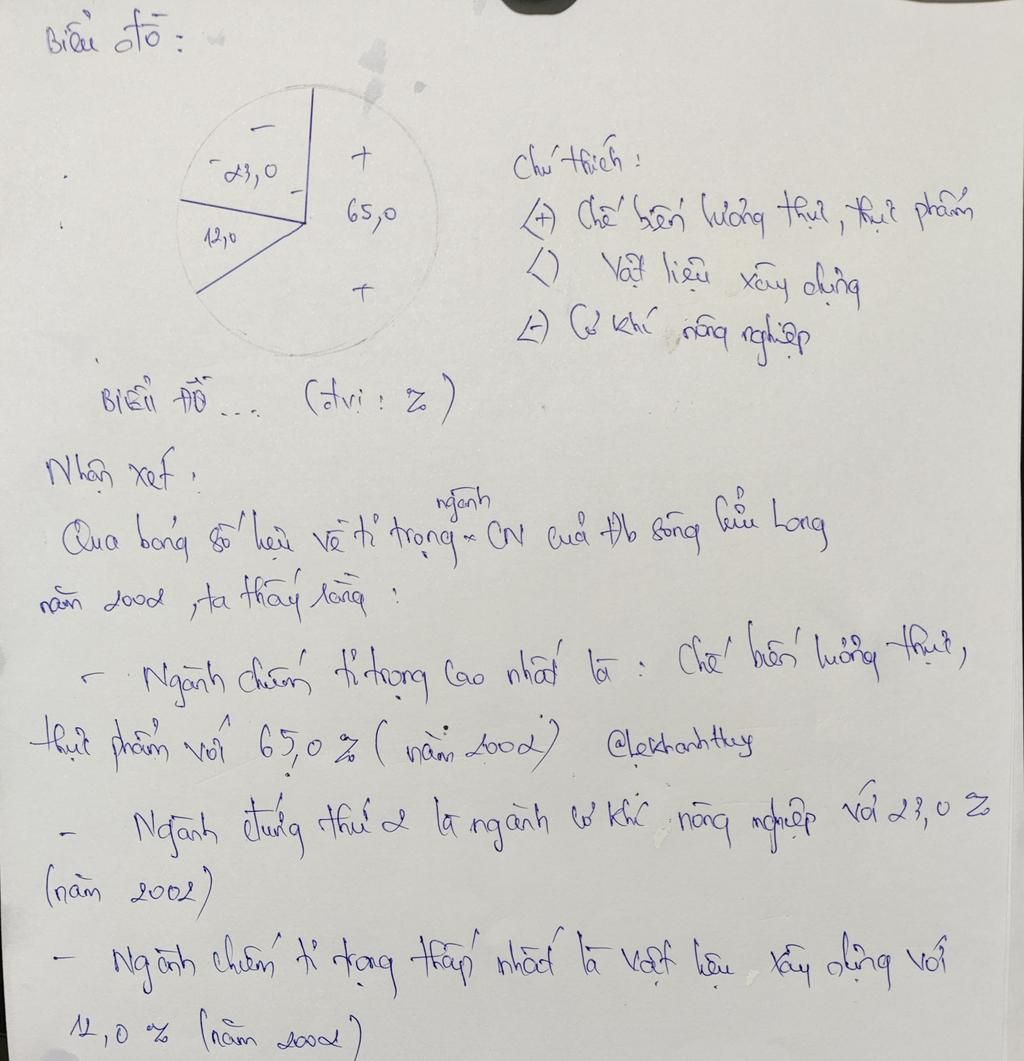 Biểu đồ :
-
+
- 23,0
-
65,0
12,0
+
Chú thích :
(+) Chế biến lương thực, thực phẩm
( ) Vật liệu xây dựng
(-) Cơ khí nông nghiệp
BIỂU ĐỒ ... (đvị : %)
Nhận xét :
Qua bảng số liệu về tỉ trọng ngành CN của Đb sông Cửu Long
năm 2002 , ta thấy rằng :
- Ngành chiếm tỉ trọng cao nhất là : Chế biến lương thực,
thực phẩm với 65,0 % ( năm 2002) @lekhanhthuy
- Ngành đứng thứ 2 là ngành cơ khí nông nghiệp với 23,0 %
(năm 2002)
- Ngành chiếm tỉ trọng thấp nhất là vật liệu xây dựng với
12,0 % (năm 2002)